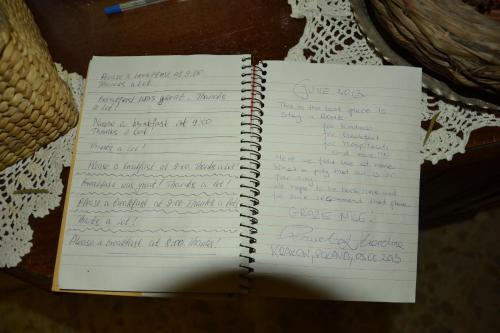 Please a breakfast at 9:00
Thanks a lot!
Breakfast was great. Thanks
a lot!
Please a breakfast at 9:00
Thanks a lot!
Thanks a lot!
Please a breakfast at 9:00 Thanks a lot!
Breakfast was great! Thanks a lot!
Please a breakfast at 9:00 Thanks a lot!
Thanks a lot!
Please a breakfast at 8:00. Thanks!
JUNE 2013
This is the best place to
stay a Rome
for kindness
for breakfast
for hospitality
Here we felt like at home
What a pity that
to be back here and
for sure recommend that place
GRAZIE MILLE!
KRAKOW, POLAND,